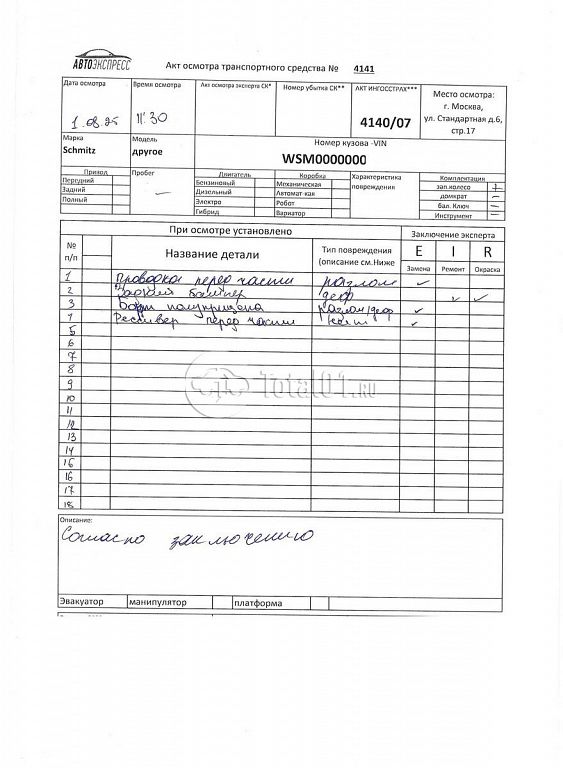 АВТОЭКСПРЕСС
Акт осмотра транспортного средства № 4141
Дата осмотра
Время осмотра
Акт осмотра эксперта СК*
Номер убытка СК**
АКТ ИНГОССТРАХ***
Место осмотра:
г. Москва,
ул. Стандартная д.6,
стр.17
1.08.25
11:30
4140/07
Марка
Модель
Номер кузова -VIN
Schmitz
другое
WSM0000000
Привод
Пробег
Двигатель
Коробка
Характеристика
повреждения
Комплектация
Передний
Бензиновый
Механическая
зап.колесо +
Задний
Дизельный
Автомат-кая
домкрат –
Полный
–
Электро
Робот
бал. Ключ –
Гибрид
Вариатор
Инструмент –
При осмотре установлено
Заключение эксперта
№
п/п
Название детали
Тип повреждения
(описание см.Ниже
E I R
Замена Ремонт Окраска
1 Проводка перед части разлом ✓
2 Задний бампер деф ✓ ✓
3 Борт полуприцепа разлом/деф ✓
4 Рессивер перед части ✓
5
6
7
8
9
10
11
12
13
14
15
16
17
18
Total01.RU
Описание:
Согласно заключению
Эвакуатор манипулятор платформа